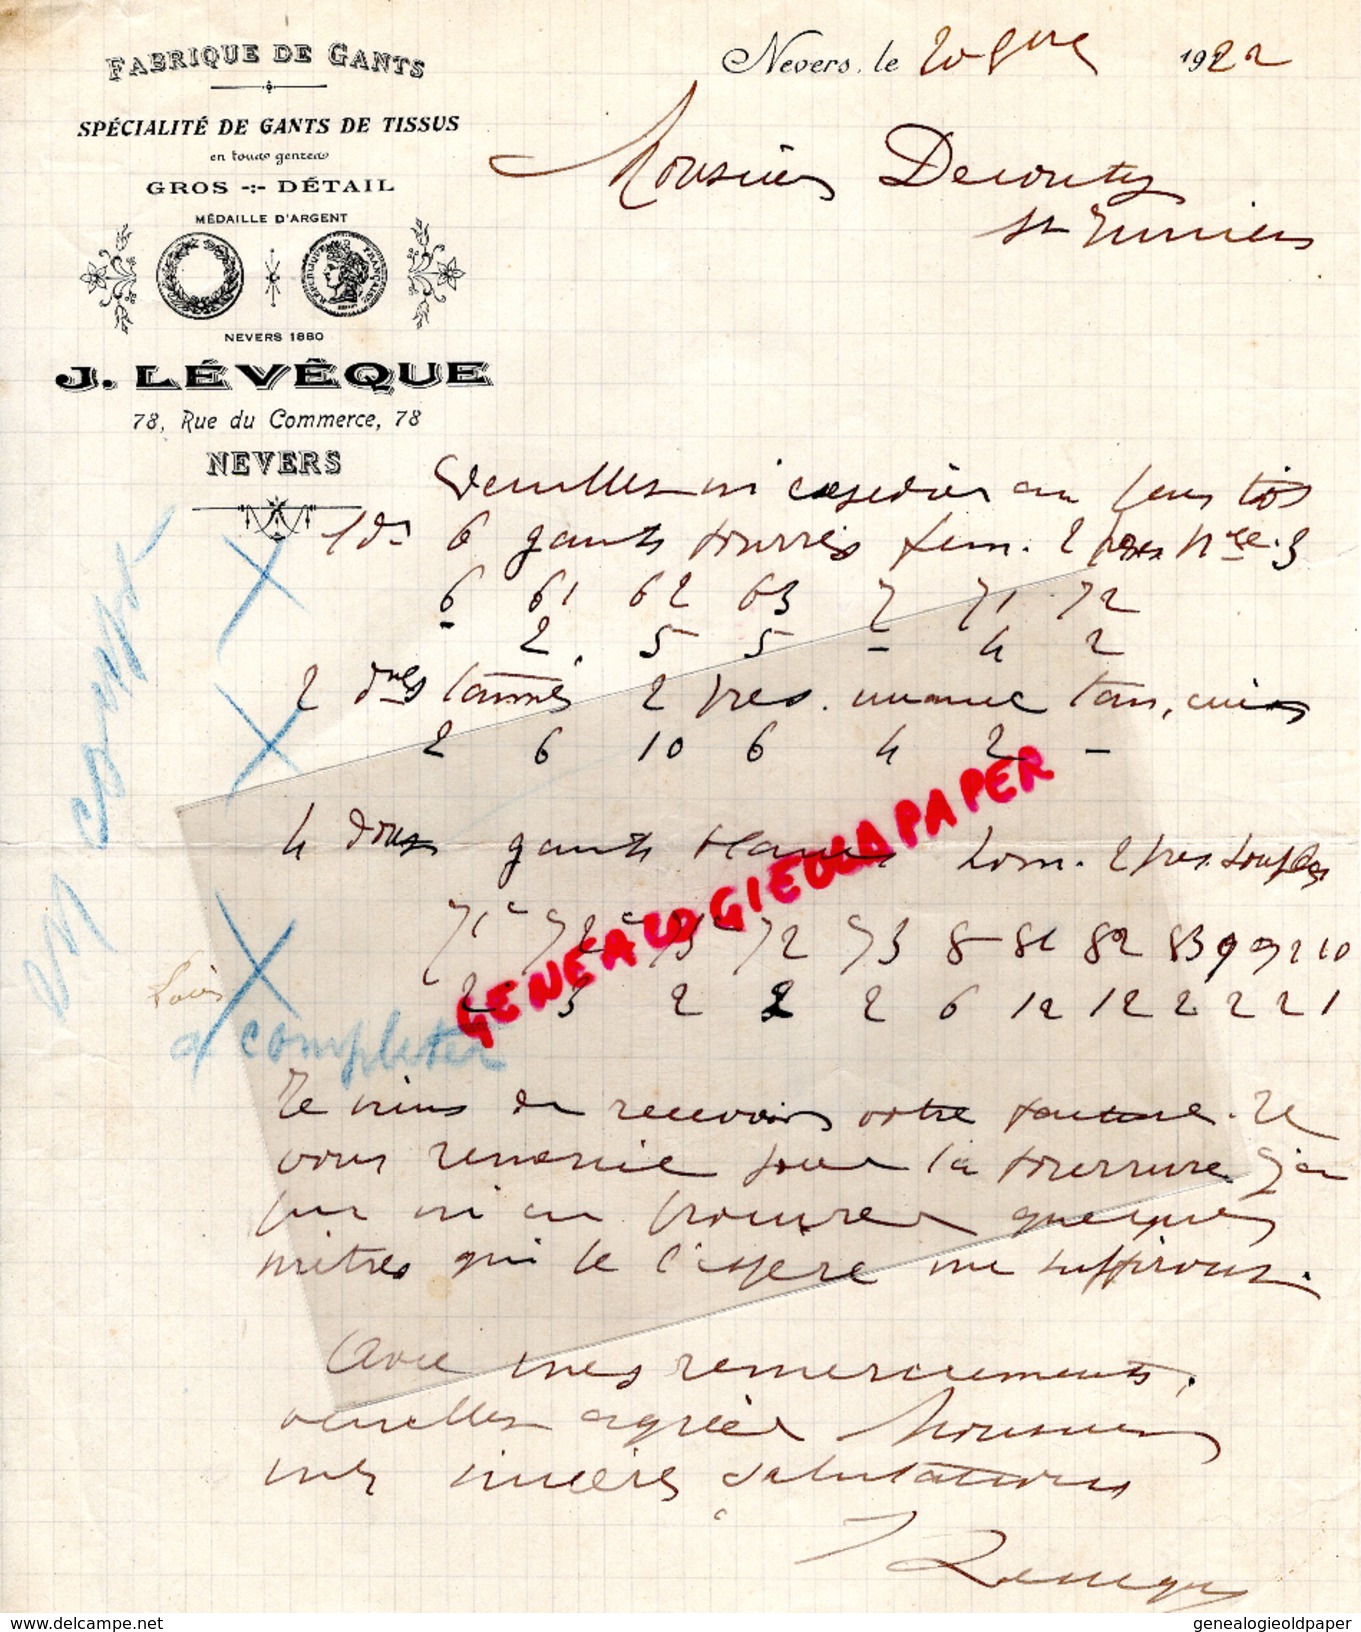 FABRIQUE DE GANTS
SPÉCIALITÉ DE GANTS DE TISSUS
en tous genres
GROS -:- DÉTAIL
MÉDAILLE D'ARGENT
RÉPUBLIQUE FRANÇAISE
NEVERS 1880
J. LÉVÊQUE
78, Rue du Commerce, 78
NEVERS
Nevers, le 20 9bre 1922
Monsieur Decouty
St Junien
Veuillez m'expédier au plus tôt
1 dz 6 gants fourrés fem. 2 pres nce. 3
6 61 62 63 7 71 72
- 2 5 5 - 4 2
2 dnes tannés 2 pres. nuance tan, cuir
2 6 10 6 4 2 -
4 douz gants blancs hom. 2 pres. souples
71c 72c 73c 72 73 8 81 82 83 9 92 10
2 3 2 2 2 6 12 12 2 2 2 1
à compléter
Je viens de recevoir votre facture. Je
vous remercie pour la fourrure. J'ai
pu m'en procurer quelques
mètres qui je l'espère me suffiront.
Avec mes remerciements,
veuillez agréer Monsieur
mes sincères salutations
J Leveque
GENEALOGIEOLDPAPER
www.delcampe.net
genealogieoldpaper